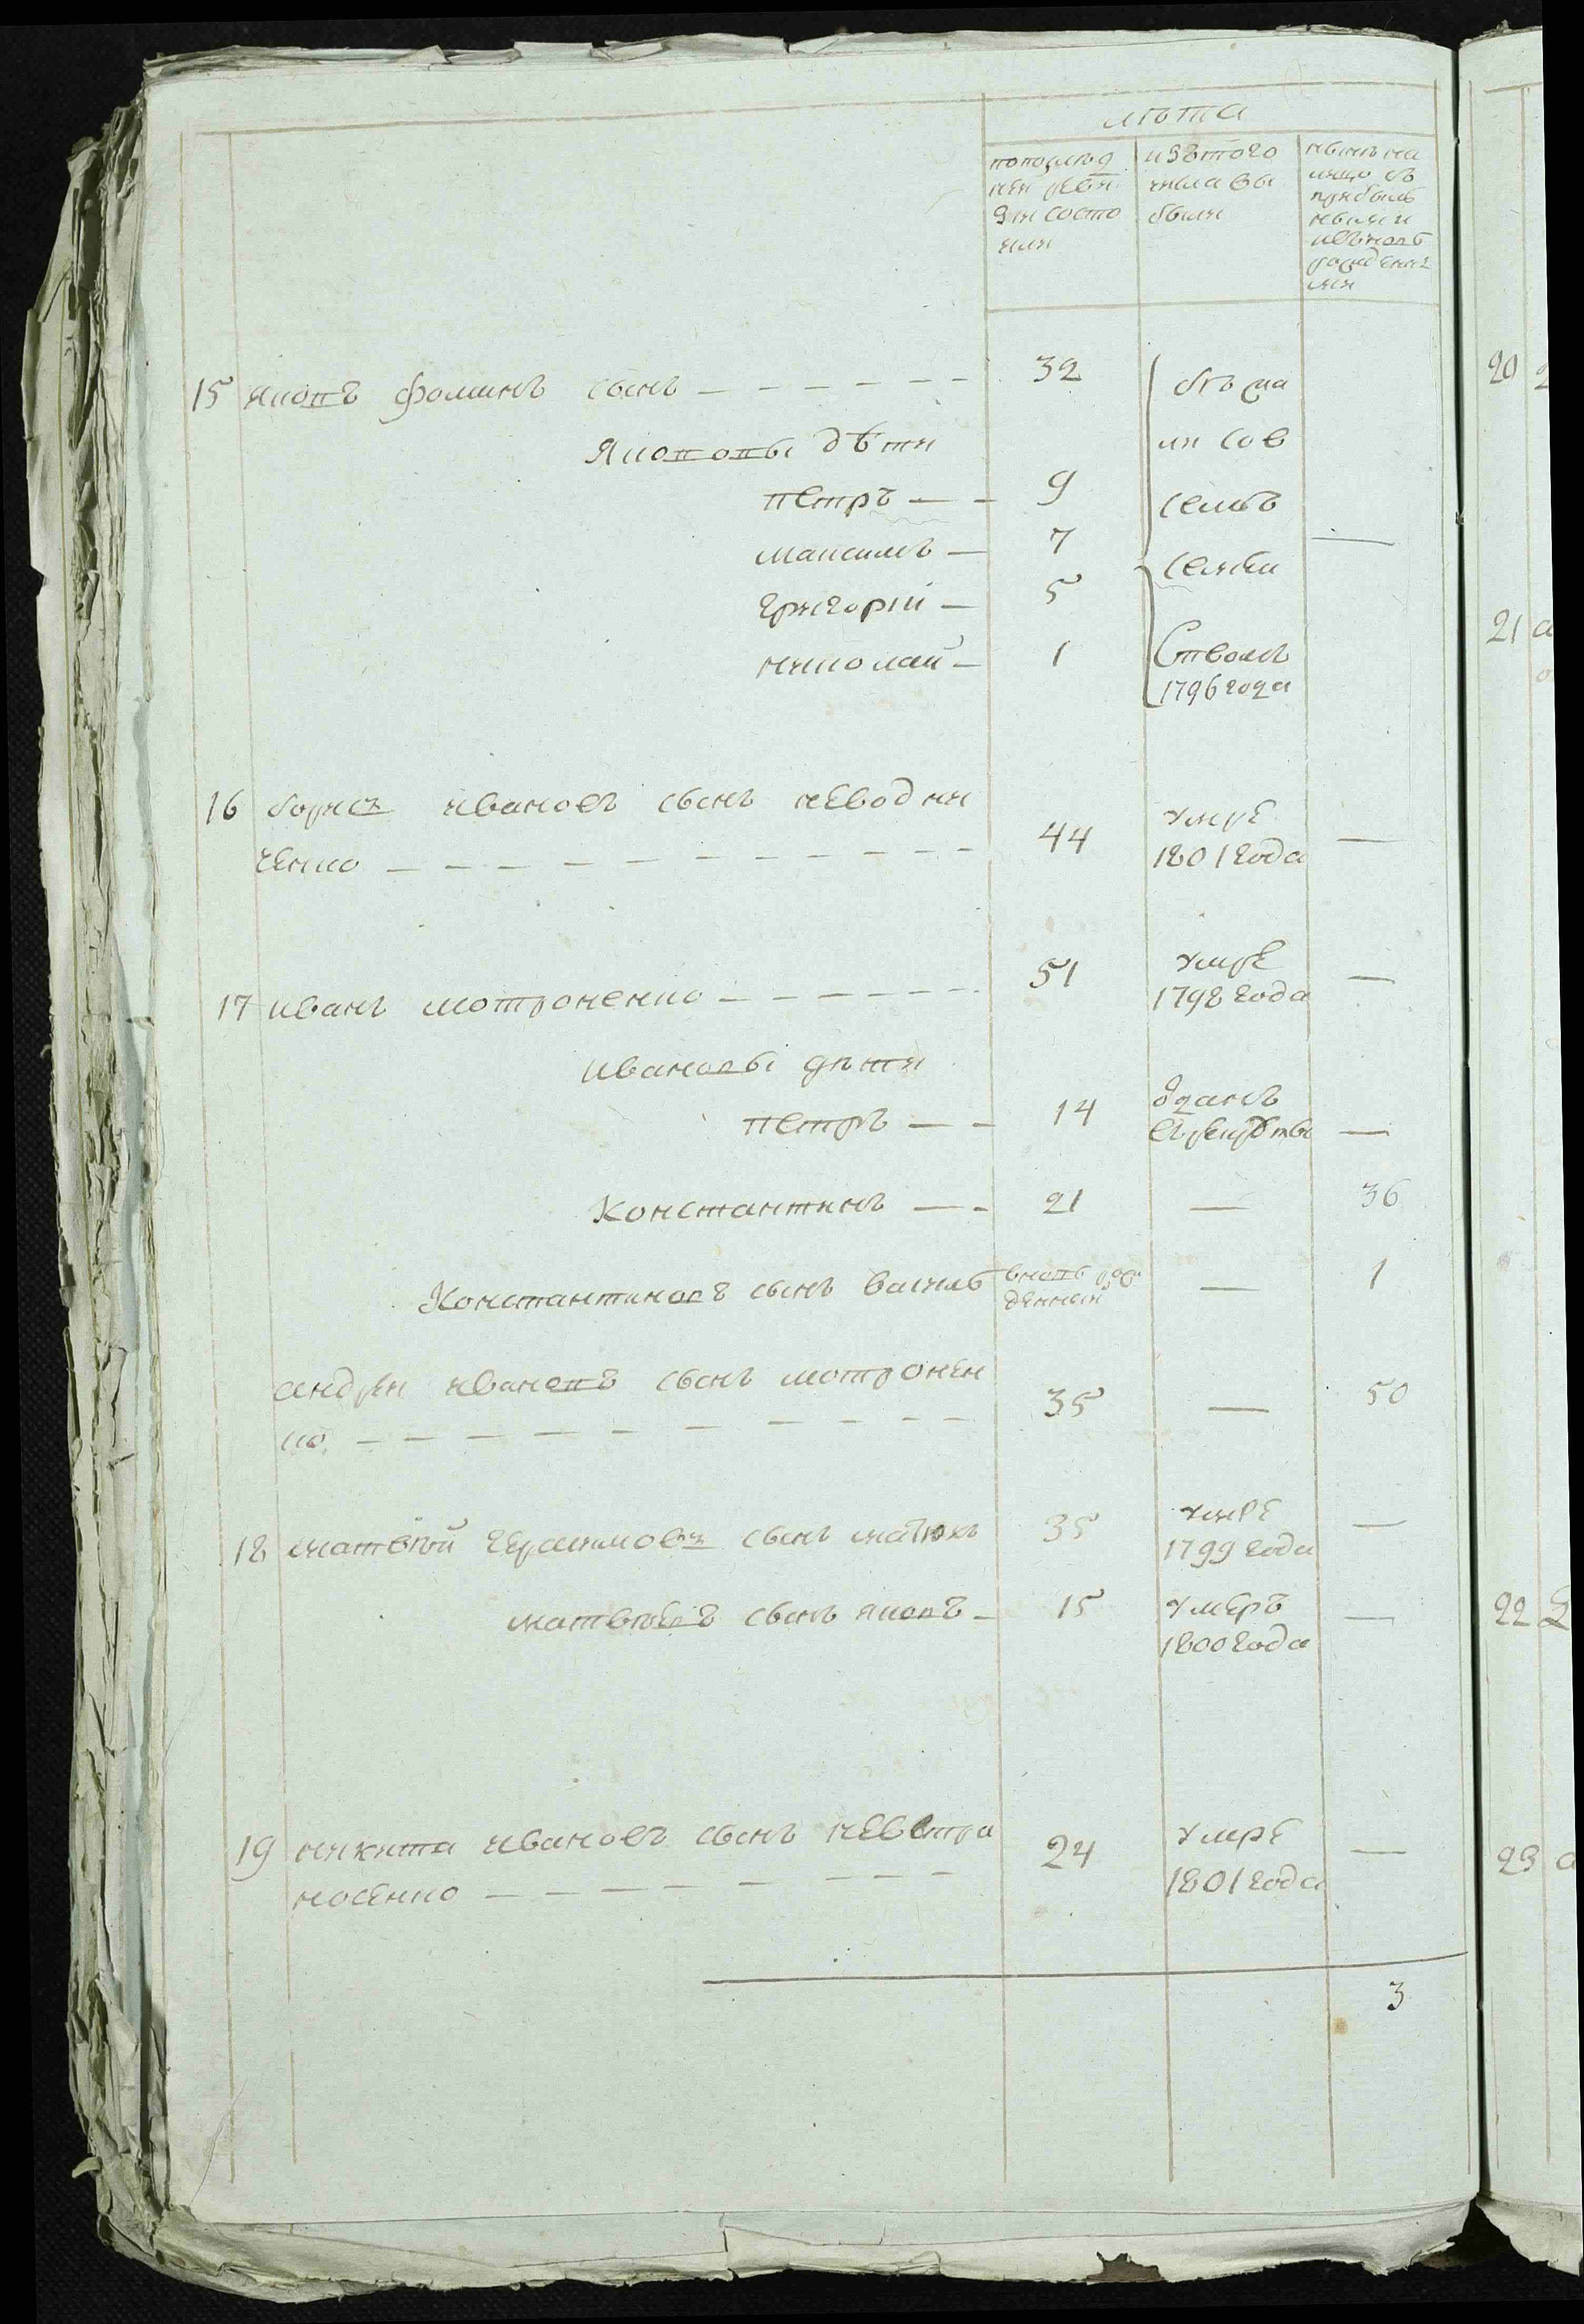 лѣта
попослѣд
ней реви
зии состо
яли
изътого
числа вы
были
нынѣ на
лицо съ
прибыль
ными
ивъновъ
рожденны
ми
15 яковъ фоминъ сынъ 32
бѣжа
Якововы дѣти
ли сов
петръ 9
семъ
максимъ 7 —
семеи
григорий 5
николай 1
ством
1796 года
16 борисъ ивановъ сынъ неводни
ченко 44 умре —
1801 года
17 иванъ мотроненко 51 умре —
1798 года
ивановы дѣти
петръ 14 одан
въ рекруты —
Константинъ 21 — 36
Константиновъ сынъ василь вновь рож
денный — 1
андрей ивановъ сынъ мотронен
ко 35 — 50
18 матвѣй герасимовъ сынъ 35 умре —
1799 года
матвѣевъ сынъ яковъ 15 умеръ —
1800 года
19 никита ивановъ сынъ невстра
носенко 24 умре —
1801 года
3
20
21
22
23